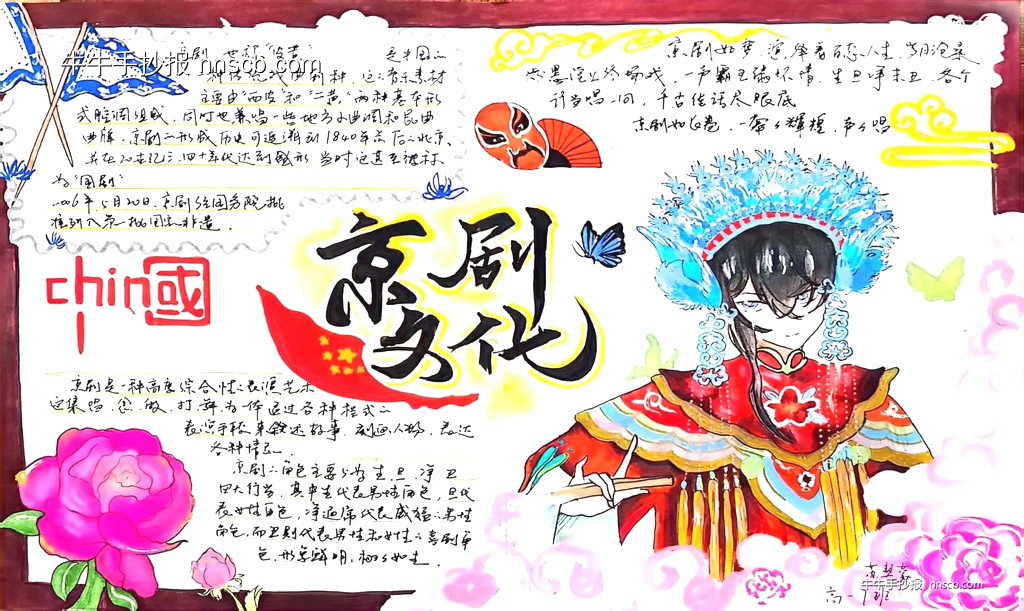 牛牛手抄报 nhscb.com
京剧，世称"皮黄"，是中国之
一种传统戏曲剧种，这音乐素材
主要由"西皮"和"二黄"两种基本形
式腔调组成，同时也兼唱一些地方小曲调和昆曲
曲牌。京剧之形成历史可追溯到1840年前后之北京、
并在20世纪三四十年代达到鼎盛
为"国剧"
2006年5月20日，京剧经国务院批
准列入第一批国家非遗。
京剧如梦，演绎着百态人生，岁月沧桑
一声霸王
行当唱一回，千古佳话尽眼底
京剧如
京剧
文化
chin国
京剧是一种高度综合性之表演艺术
这集唱、念、做、打、舞为一体通过各种程式之
表演手段来叙述故事，刻画人物，表达
各种情感。
京剧之角色主要分为生、旦、净、丑
四大行当，其中生代表男性角色，旦代
表女性角色，净通常代表威猛之男性
角色，而丑则代表男性和女性之喜剧角
色，形象鲜明，栩栩如生
牛牛手抄报 nhscb.com
高一 班